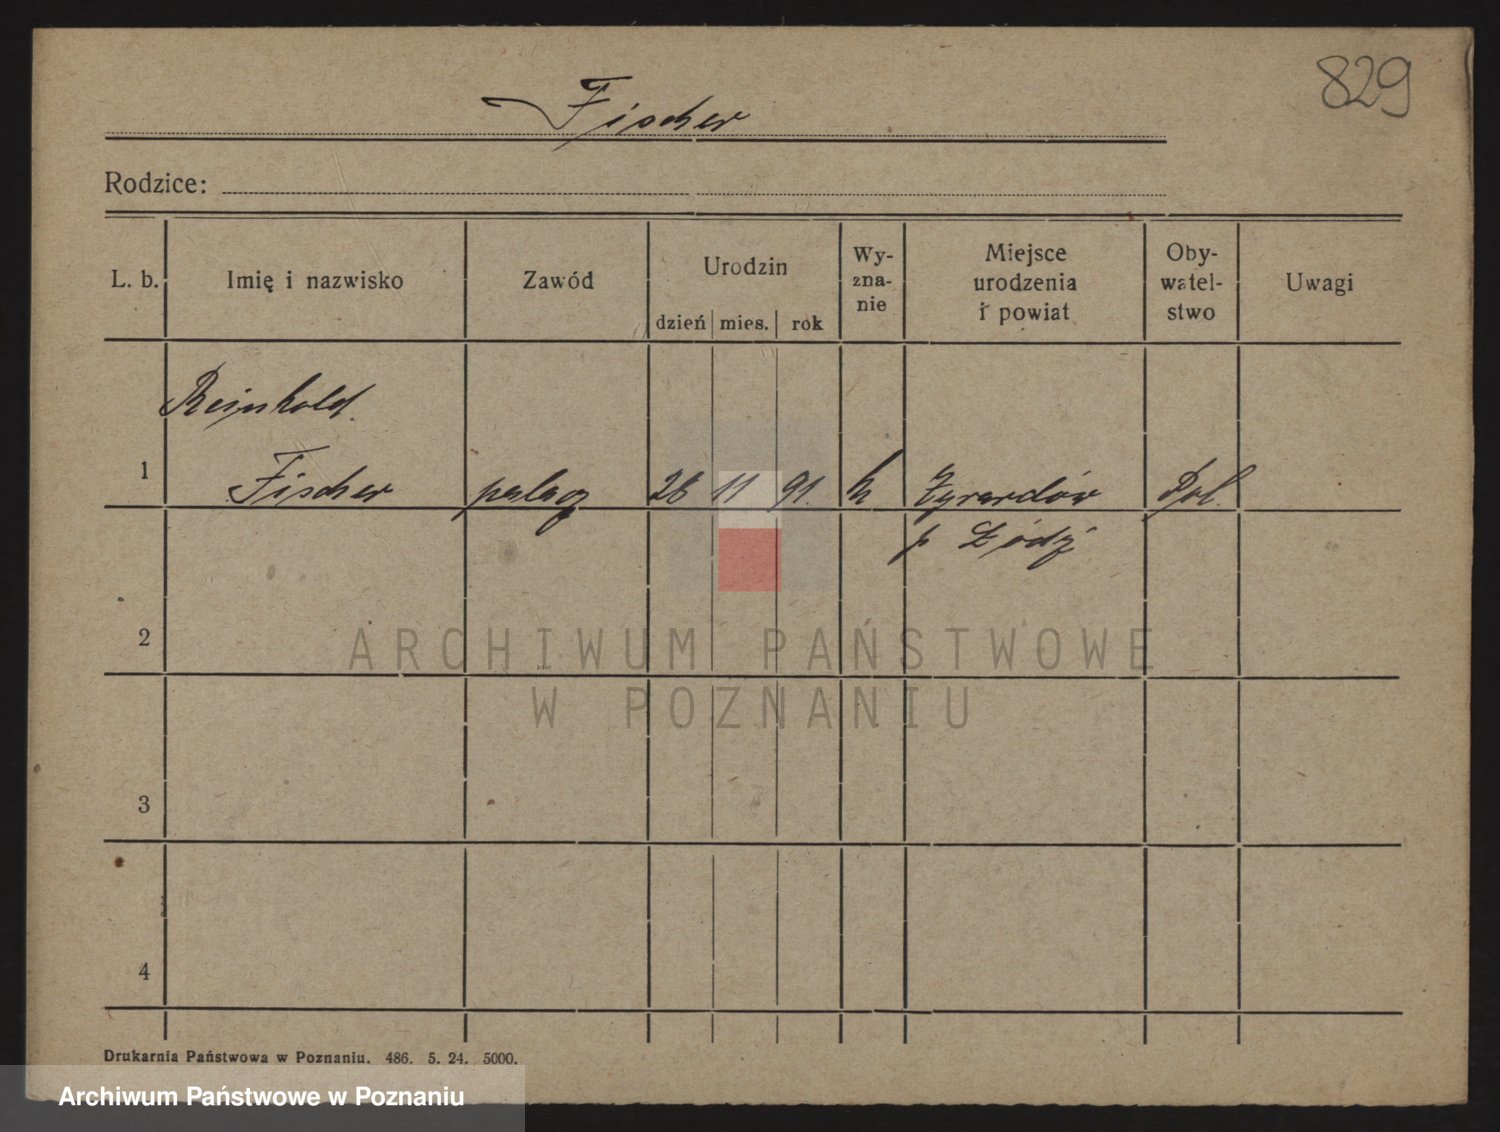 829
Fischer
Rodzice:
L. b. Imię i nazwisko Zawód Urodzin dzień mies. rok Wy-zna-nie Miejsce urodzenia i powiat Oby-watel-stwo Uwagi
Reinhold
1 Fischer palacz 26 11 91. k Żyrardów Pol.
p Łódź
2
3
4
Drukarnia Państwowa w Poznaniu. 486. 5. 24. 5000.
ARCHIWUM PAŃSTWOWE
W POZNANIU
Archiwum Państwowe w Poznaniu